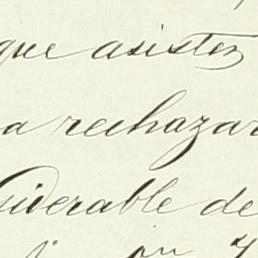 que asisten
a rechazar
siderable de